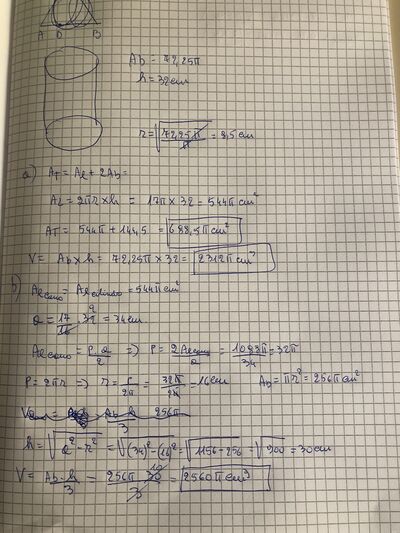 A D B
Ab = 72,25π
h = 32cm
r = √(72,25π/π) = 8,5cm
a) AT = Al + 2Ab =
Al = 2πr × h = 17π × 32 = 544π cm²
AT = 544π + 144,5 = 688,5π cm²
V = Ab × h = 72,25π × 32 = 2312π cm³
b) Al cono = Al cilindro = 544π cm²
a = 17/16 · 32 = 34cm
Al cono = P·a/2 => P = 2Al cono/a = 1088π/34 = 32π
P = 2πr => r = P/2π = 32π/2π = 16cm Ab = πr² = 256π cm²
h = √(a² - r²) = √((34)² - (16)²) = √(1156 - 256) = √900 = 30cm
V = Ab · h/3 = 256π · 30/3 = 2560π cm³